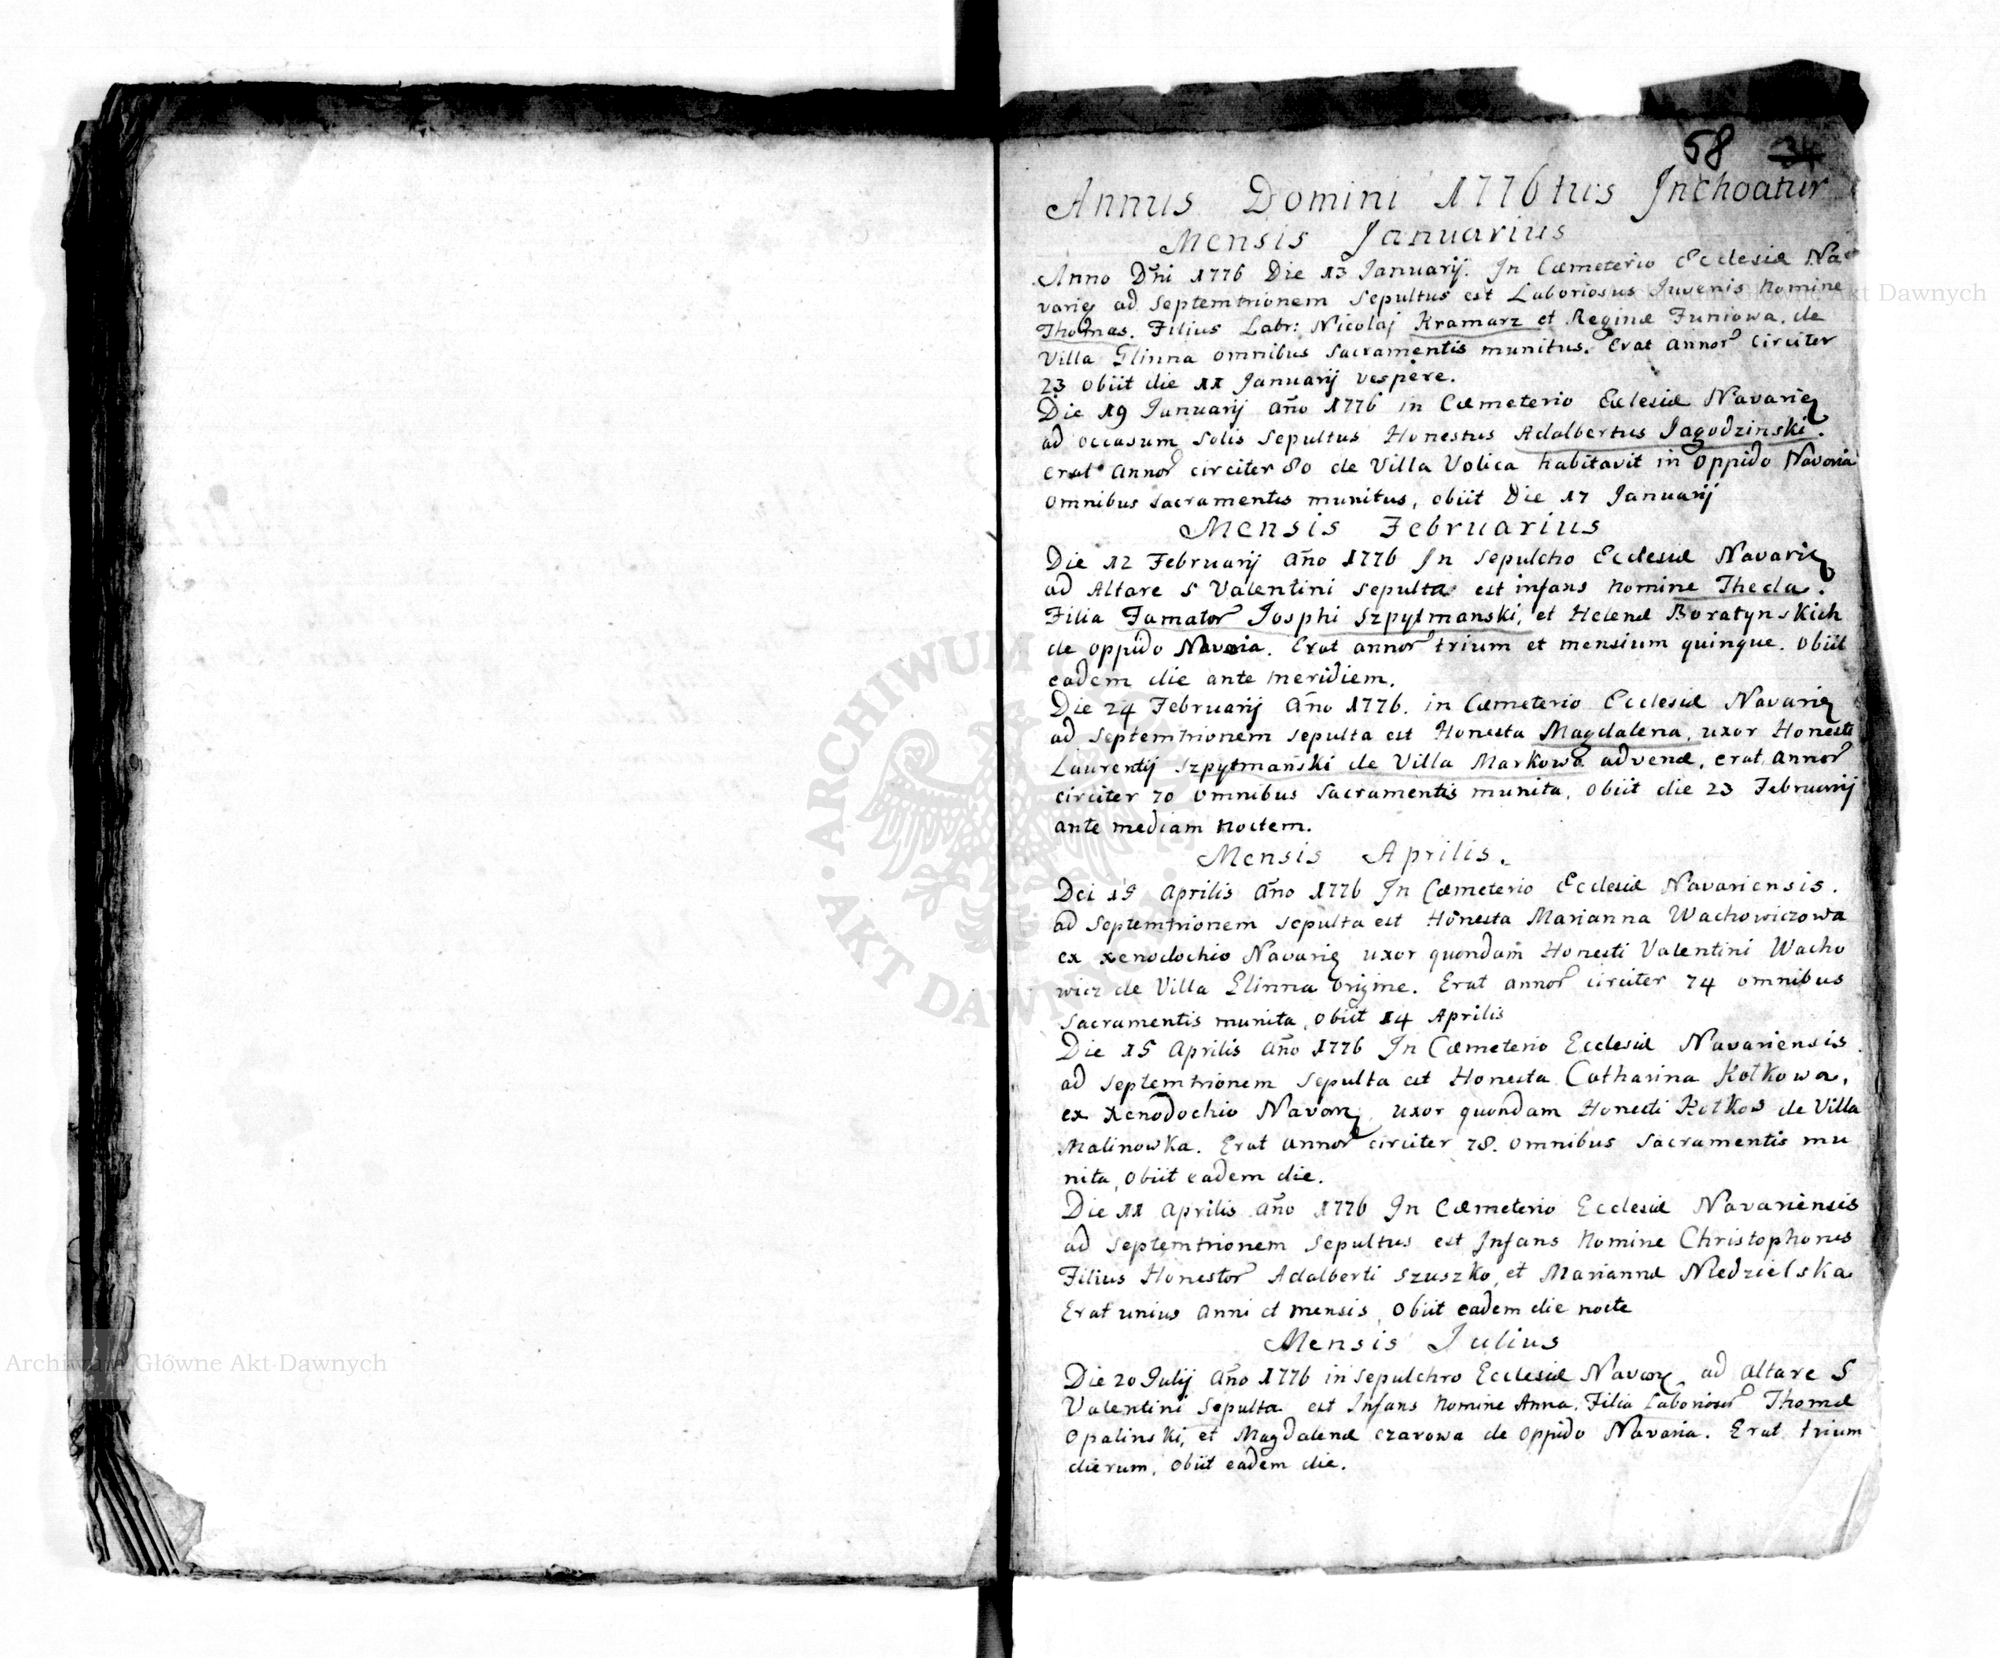 58 34
Annus Domini 1776tus Inchoatur
Mensis Januarius
Anno Dñi 1776 Die 13 Januarij. In Cæmeterio Ecclesiæ Na=
varię ad Septemtrionem Sepultus est Laboriosus Juvenis Nomine
Thomas. Filius Labr: Nicolaj Kramarz et Reginæ Funiowa. de
Villa Glinna omnibus Sacramentis munitus. Erat annor circiter
23 obiit die 11 Januarij vespere.
Die 19 Januarij Año 1776 in Cæmeterio Eclesiæ Navarię
ad occasum Solis Sepultus Honestus Adalbertus Jagodzinski.
erat annor circiter 80 de Villa Volica habitavit in Oppido Navaria
omnibus Sacramentis munitus, obiit Die 17 Januarij
Mensis Februarius
Die 12 Februarij Año 1776 In Sepulcho Ecclesiæ Navarię
ad Altare S Valentini Sepulta est infans Nomine Thecla.
Filia Famator Josphi Szpytmanski, et Helenæ Boratynskich
de oppido Navaria. Erat annor trium et mensium quinque. Obiit
eadem die ante meridiem.
Die 24 Februarij Año 1776. in Cæmeterio Ecclesiæ Navarię
ad Septemtrionem Sepulta est Honesta Magdalena, uxor Honesti
Laurentij Szpytmański de Villa Markowa advenæ, erat annor
circiter 70 omnibus Sacramentis munita, obiit die 23 Februarij
ante mediam noctem.
Mensis Aprilis.
Dei 15 Aprilis Año 1776 In Cæmeterio Ecclesiæ Navariensis.
ad Septemtrionem Sepulta est Honesta Marianna Wachowiczowa
ex xenodochio Navarię uxor quondam Honesti Valentini Wacho
wicz de Villa Glinna origine. Erat annor circiter 74 omnibus
Sacramentis munita, obiit 14 Aprilis
Die 15 Aprilis Año 1776 In Cæmeterio Ecclesiæ Navariensis.
ad Septemtrionem Sepulta est Honesta Catharina Kotkowa,
ex Xenodochio Navarię uxor quondam Honesti Kotkos de Villa
Malinowka. Erat annor circiter 78. omnibus Sacramentis mu
nita, obiit eadem die.
Die 11 Aprilis Año 1776 In Cæmeterio Ecclesiæ Navariensis
ad Septemtrionem Sepultus est Infans Nomine Christophorus
Filius Honestor Adalberti Szuszko, et Mariannæ Niedzielska
Erat unius anni et mensis, Obiit eadem die nocte
Mensis Julius
Die 20 Julij Año 1776 in Sepulchro Ecclesiæ Navarię ad Altare S
Valentini Sepulta est Infans Nomine Anna. Filia Laborioser Thomæ
Opalinski, et Magdalenæ czarowa de oppido Navaria. Erat trium
dierum, obiit eadem die.
Archiwum Główne Akt Dawnych
ARCHIWUM GŁÓWNE AKT DAWNYCH
Archiwum Główne Akt Dawnych